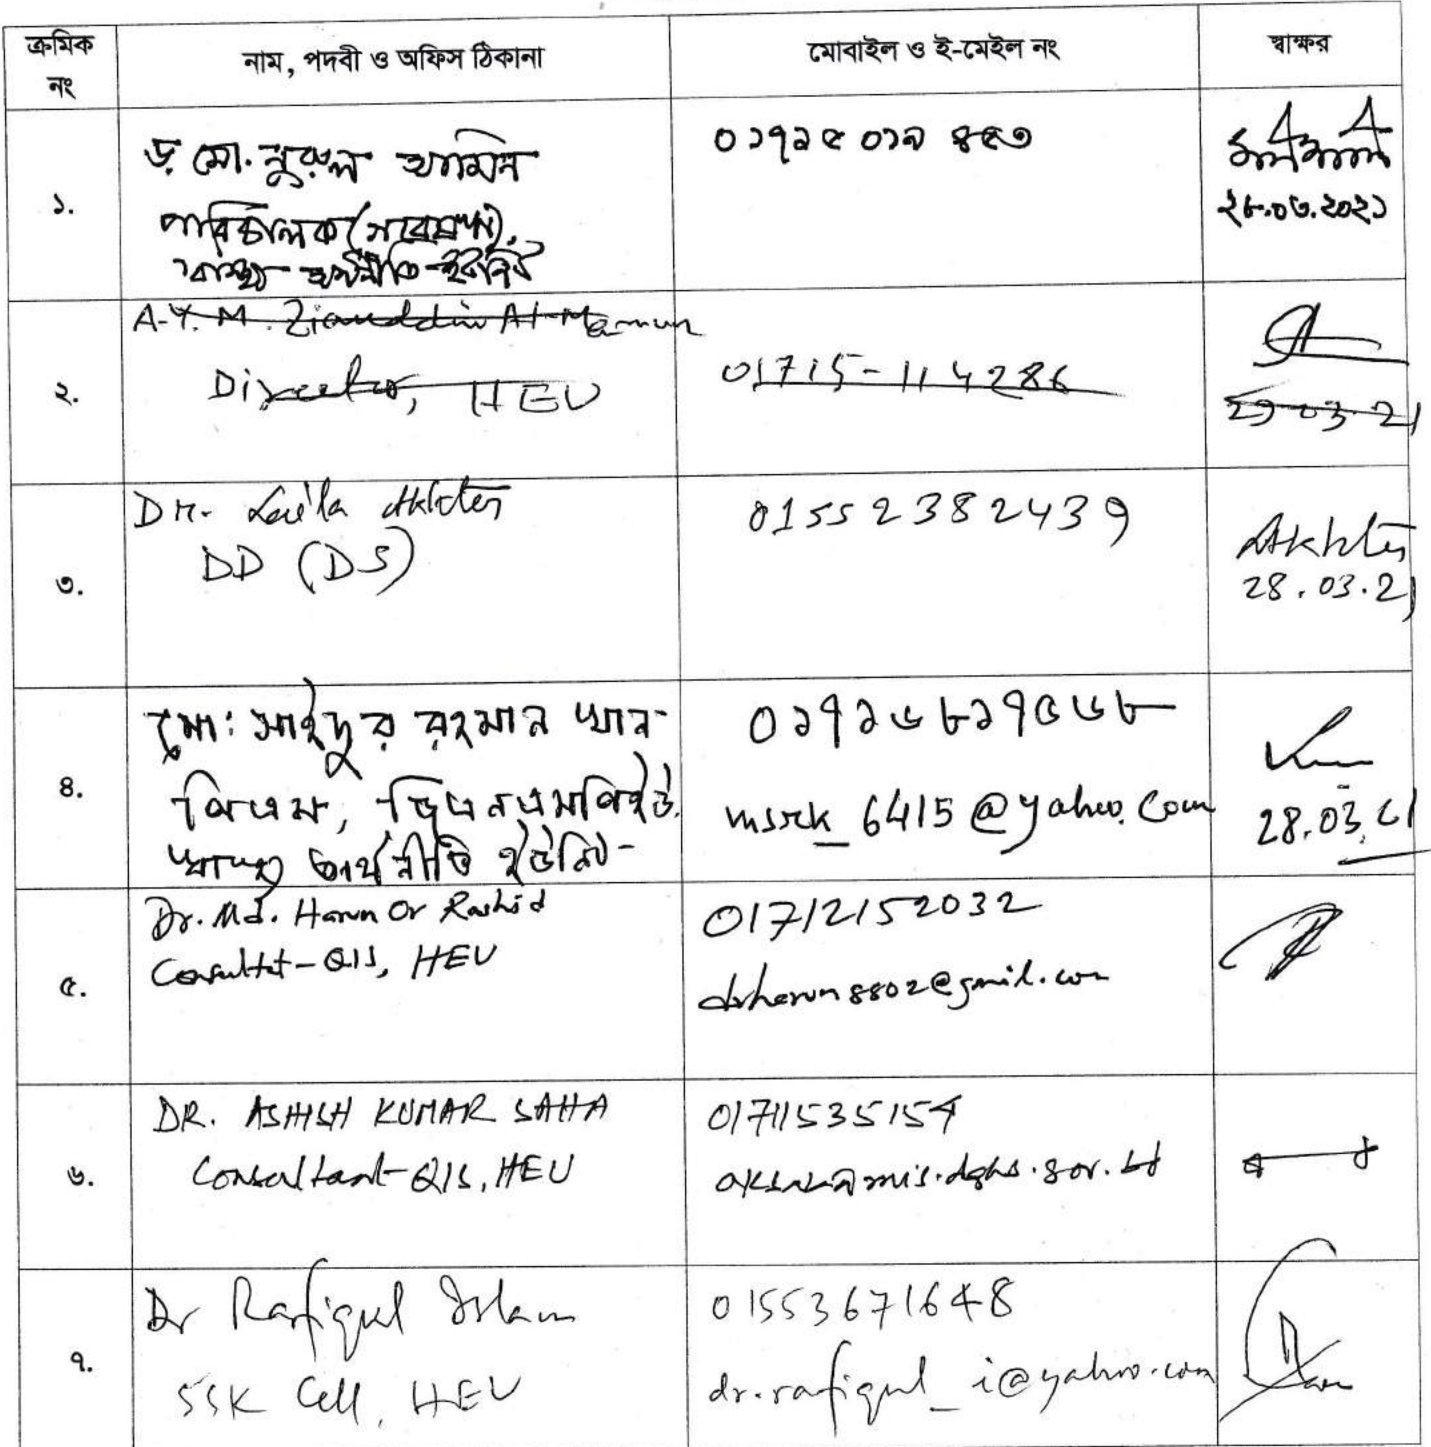 ক্রমিক নং
নাম, পদবী ও অফিস ঠিকানা
মোবাইল ও ই-মেইল নং
স্বাক্ষর
১.
ড. মো. নুরুল আমিন
পরিচালক (গবেষণা),
স্বাস্থ্য অর্থনীতি ইউনিট
২৮.০৩.২০২১
২.
A.Y.M. Ziauddin Al-Mamun
Director, HEU
01715-114286
৩.
Dr. Laila Akhter
DD (DS)
01552382439
Akhter
28.03.21
৪.
মো: সাইদুর রহমান খান
পিএম, ডিএনএমপিইউ
স্বাস্থ্য অর্থনীতি ইউনিট
০১৭১৬৮১৭৫৬৮
msrk_6415@yahoo.com
28.03.21
৫.
Dr. Md. Harun Or Rashid
Consultat-QIS, HEU
01712152032
drharun8802@gmail.com
৬.
DR. ASHISH KUMAR SAHA
Consultant-QIS, HEU
01711535154
৭.
Dr Rafiqul Islam
SSK Cell, HEU
01553671648
dr.rafiqul_i@yahoo.com